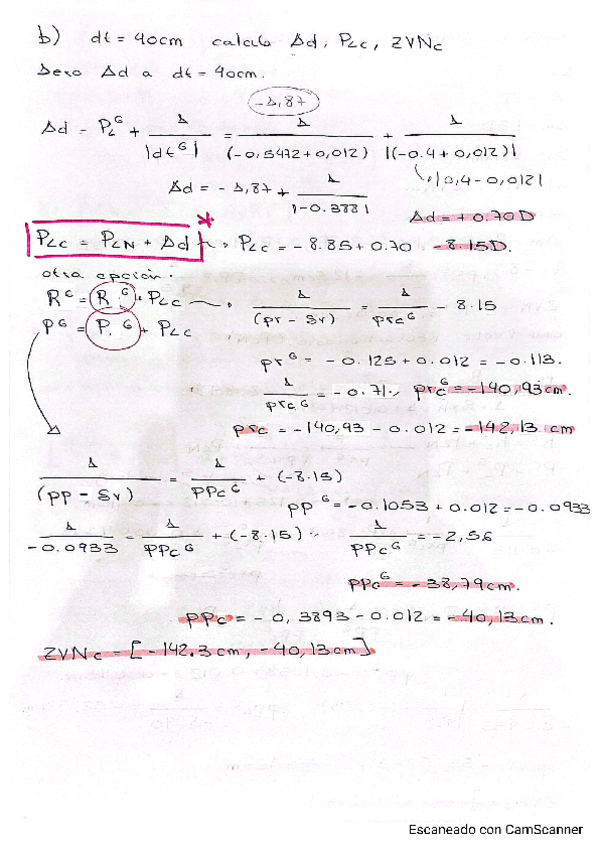 b) dt = 40cm calculo Δd, PLc, ZVNc
Deseo Δd a dt = 40cm.
-1,87
Δd = PL^G + 1/|dt^G| = 1/(-0,5472+0,012) + 1/|(-0.4+0,012)|
|0,4-0,012|
Δd = -1,87 + 1/|-0.388|
Δd = +0.70D
PLc = PLN + Δd * PLc = -8.85+0.70 -8.15D.
otra opción:
R^G = R^G + PLc 1/(pr - δv) = 1/prc^G - 8.15
P^G = P^G + PLc
pr^G = -0.125+0.012 = -0.113.
1/prc^G = -0.71 prc^G = -140,93cm.
prc = -140,93 - 0.012 = -142,13 cm
1/(pp - δv) = 1/ppc^G + (-8.15)
pp^G = -0.1053+0.012 = -0.0933
1/-0.0933 = 1/ppc^G + (-8.15) 1/ppc^G = -2,56
ppc^G = -38,79cm.
ppc = -0,3893-0.012 = -40,13cm.
ZVNc = [-142.3cm, -40,13cm]
Escaneado con CamScanner